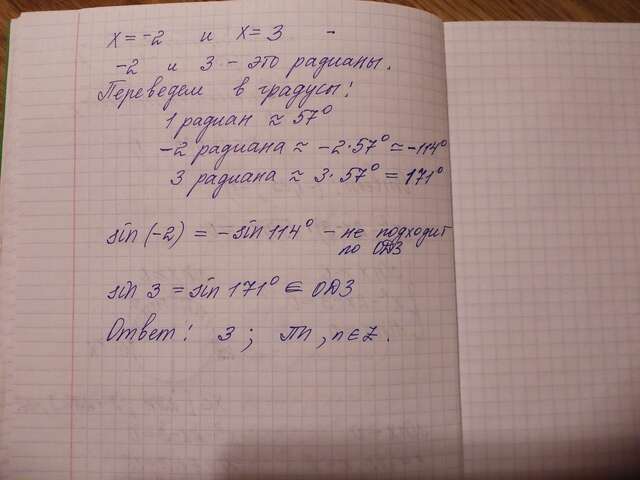 x = -2 и x = 3 -
-2 и 3 - это радианы.
Переведем в градусы:
1 радиан ≈ 57°
-2 радиана ≈ -2·57° ≈ -114°
3 радиана ≈ 3·57° = 171°
sin(-2) = -sin 114° - не подходит
по ОДЗ
sin 3 = sin 171° ∈ ОДЗ
Ответ: 3; πn, n∈Z.